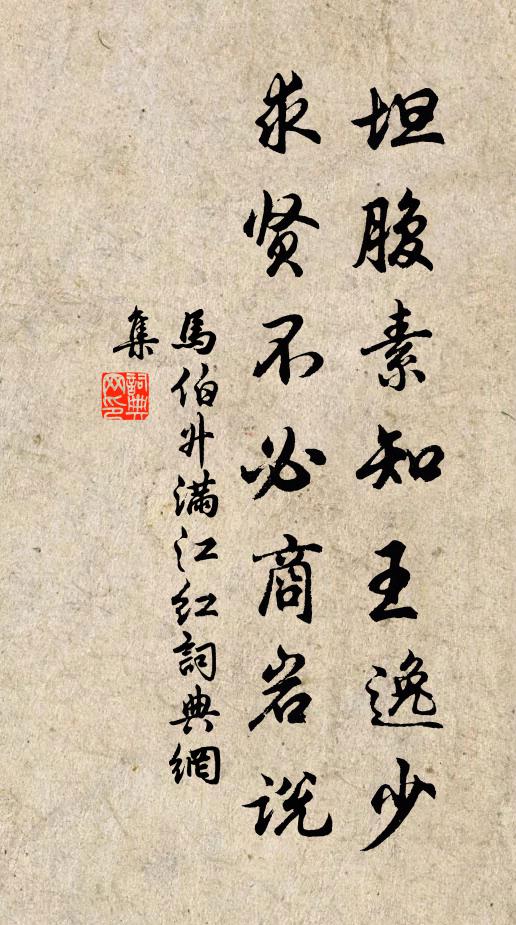 坦腹素知王逸少
求贤不必商岩说
馬伯升满江红詞典網
集
詞典网印